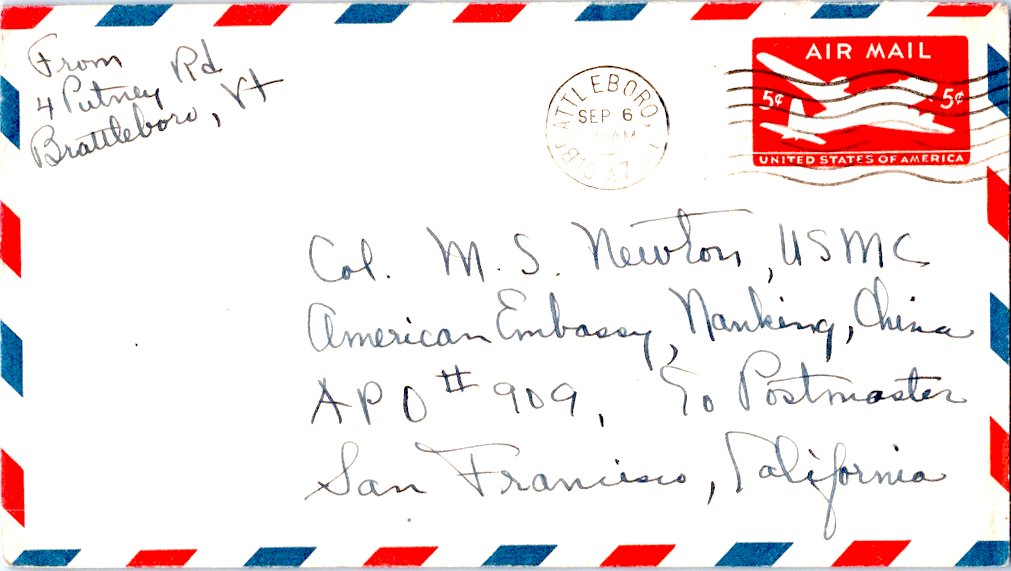 From
4 Putney Rd
Brattleboro, Vt
BRATTLEBORO
SEP 6
AM
AIR MAIL
5¢ 5¢
UNITED STATES OF AMERICA
Col. M. S. Newton, USMC
American Embassy, Nanking, China
APO # 909, % Postmaster
San Francisco, California